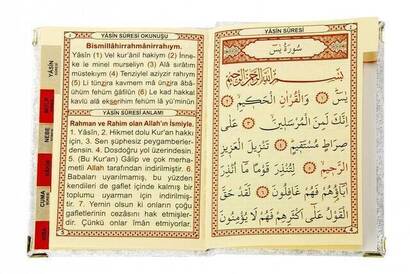 YÂSÎN SÛRESİ OKUNUŞU
Bismillâhirrahmânirrahıym.
Yâsîn (1) Vel kur'ânil hakiym (2) İnne-
ke le minel murseliyn (3) Alâ sırâtım
müstekıym (4) Tenziylel aziyzir rahıym
(5) Li tünzira kavmen mâ ünzira âbâ-
ühüm fehüm ğâfilûn (6) Le kad hakkal
kavlü alâ ekserihim fehüm lâ yü'minûn
YÂSÎN SÛRESİ ANLAMI
Rahman ve Rahim olan Allah'ın İsmiyle.
1. Yâsîn, 2. Hikmet dolu Kur'an hakkı
için, 3. Sen şüphesiz peygamberler-
densin. 4. Dosdoğru yol üzerindesin.
5. (Bu Kur'an) Gâlip ve çok merha-
metli Allah tarafından indirilmiştir. 6.
Babaları uyarılmamış, bu yüzden
kendileri de gaflet içinde kalmış bir
toplumu uyarman için indirilmiş-
tir. 7. Yemin olsun ki onların çoğu
gafletlerinin cezasını hak etmişler-
dir. Çünkü onlar îman etmiyorlar.
YÂSÎN
NEBE
CUMA
YÂSÎN SÛRESİ
سُورَةُ يٰسٓ
بِسْمِ اللّٰهِ الرَّحْمٰنِ الرَّحِيمِ
يٰسٓ ١ وَالْقُرْاٰنِ الْحَكِيمِ ٢
اِنَّكَ لَمِنَ الْمُرْسَلِينَ ٣ عَلٰى
صِرَاطٍ مُسْتَقِيمٍ ٤ تَنْزِيلَ الْعَزِيزِ
الرَّحِيمِ ٥ لِتُنْذِرَ قَوْمًا مَٓا اُنْذِرَ
اٰبَٓاؤُ۬هُمْ فَهُمْ غَافِلُونَ ٦ لَقَدْ حَقَّ
الْقَوْلُ عَلٰٓى اَكْثَرِهِمْ فَهُمْ لَا يُؤْمِنُونَ